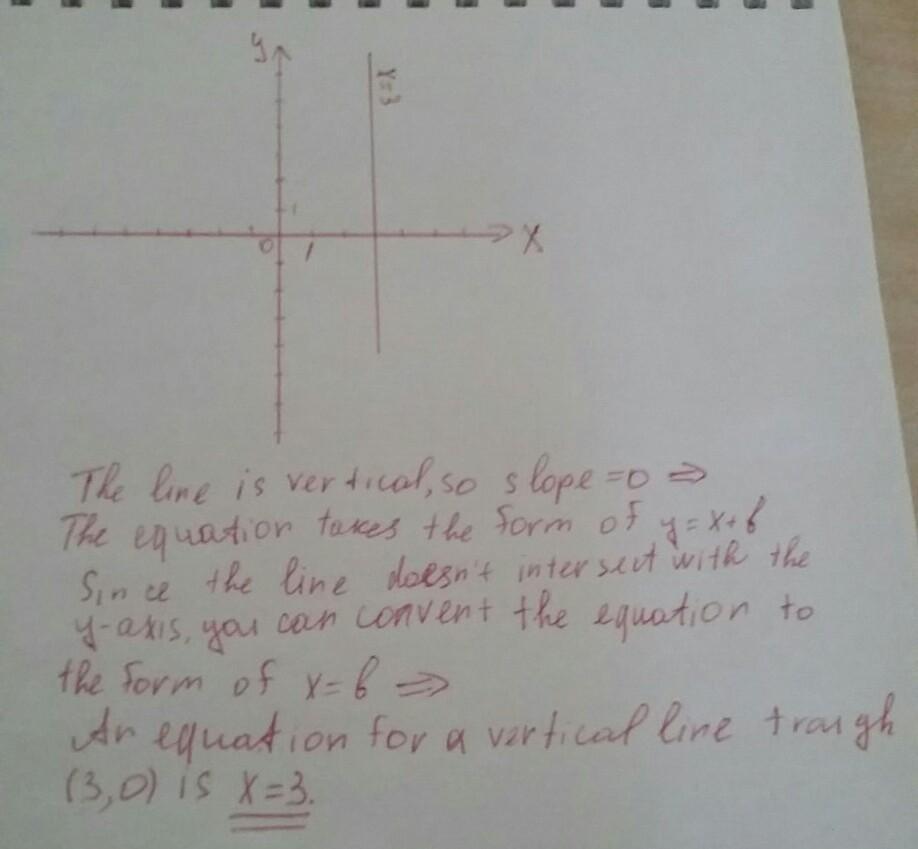 y
x=3
1
0
1
X
The line is vertical, so slope=0 ⇒
The equation takes the form of y=x+b
Since the line doesn't intersect with the
y-axis, you can convent the equation to
the form of x=b ⇒
An equation for a vertical line trough
(3,0) is x=3.